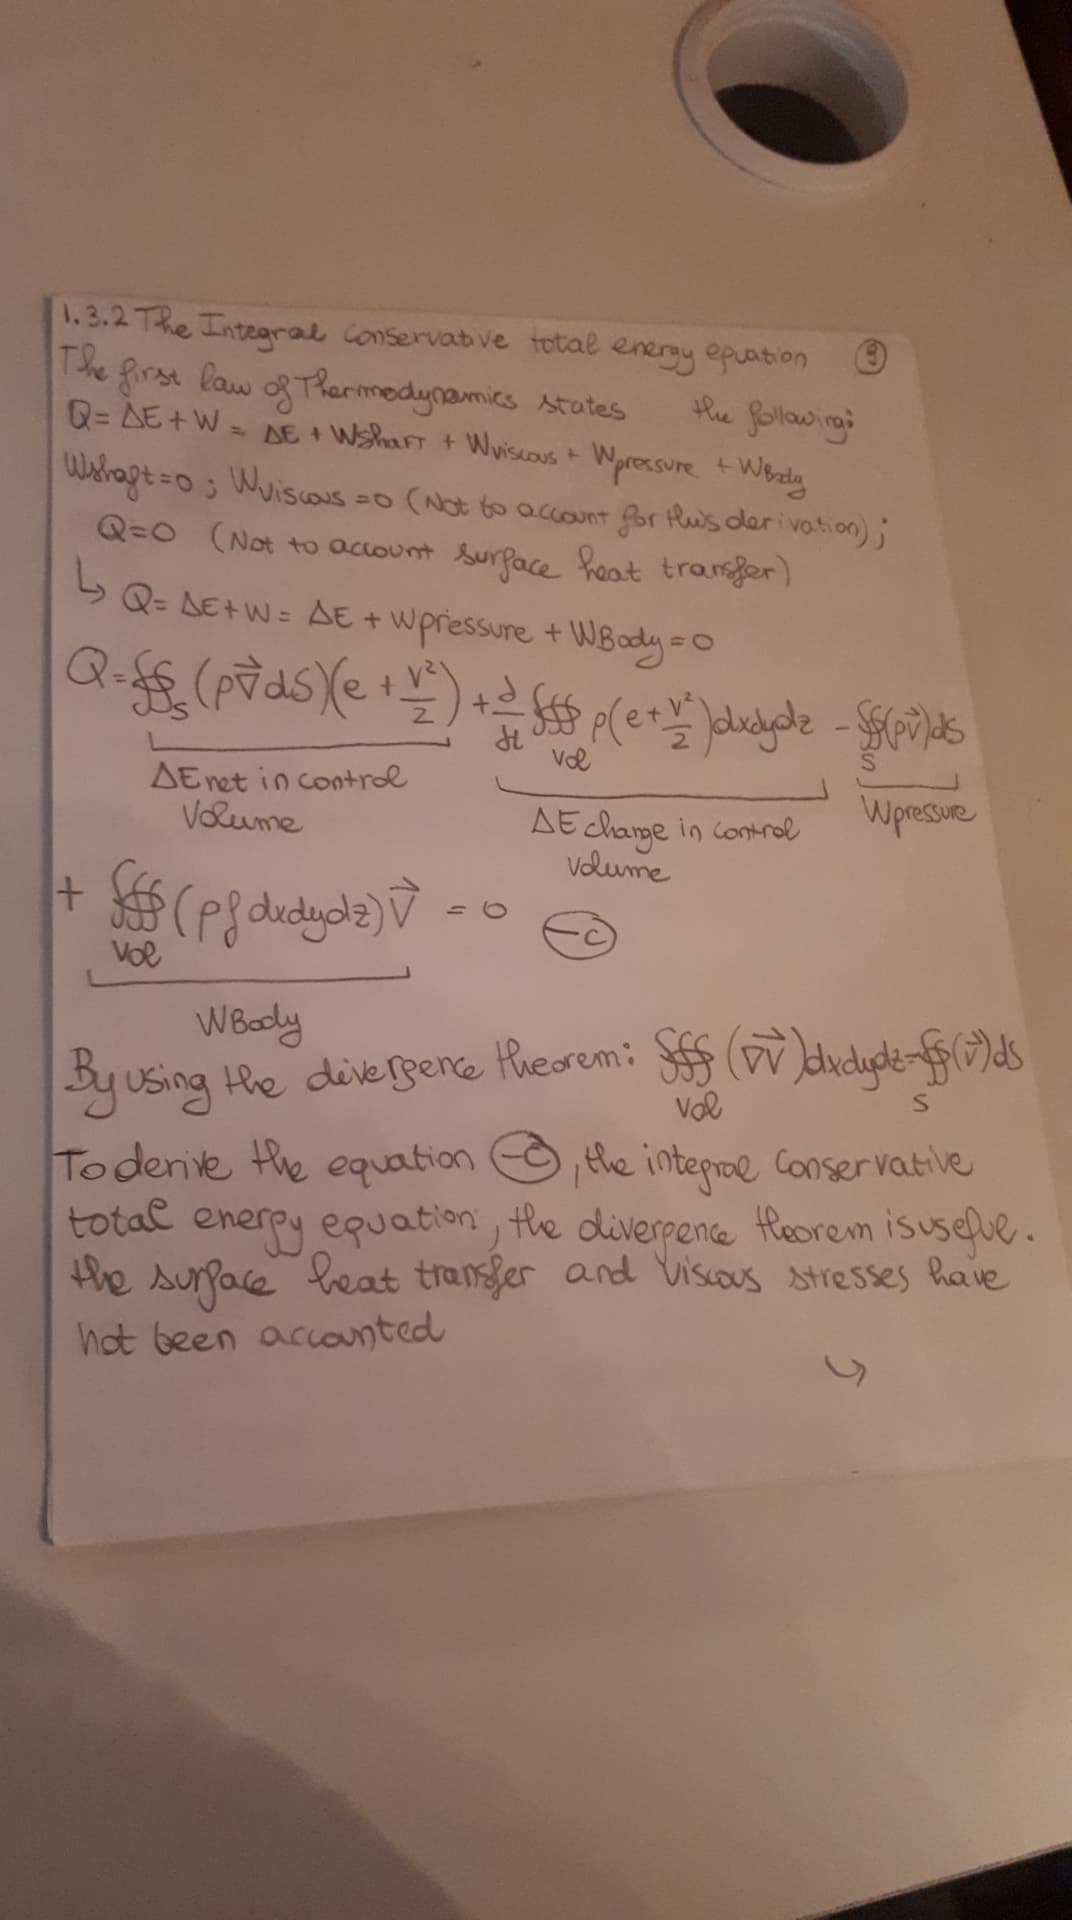 1.3.2 The Integral conservative total energy epuation ③
The first law of Thermodynamics states the following:
Q = ΔE + W = ΔE + Wshaft + Wviscous + Wpressure + WBody
Wshaft = 0 ; Wviscous = 0 (Not to account for this derivation) ;
Q = 0 (Not to account surface heat transfer)
↳ Q = ΔE + W = ΔE + Wpressure + WBody = 0
Q = ∯s (ρV⃗ dS)(e + V²/2) + d/dt ∰vol ρ(e + V²/2) dxdydz - ∯s (pv⃗) ds
ΔE net in control Volume
ΔE change in control volume
Wpressure
+ ∰vol (ρf dxdydz) V⃗ = 0 -C
WBody
By using the divergence theorem: ∰vol (∇V⃗) dxdydz = ∯s (v⃗) ds
To derive the equation -C, the integral conservative
total energy equation, the divergence theorem is useful.
the surface heat transfer and viscous stresses have
not been accounted